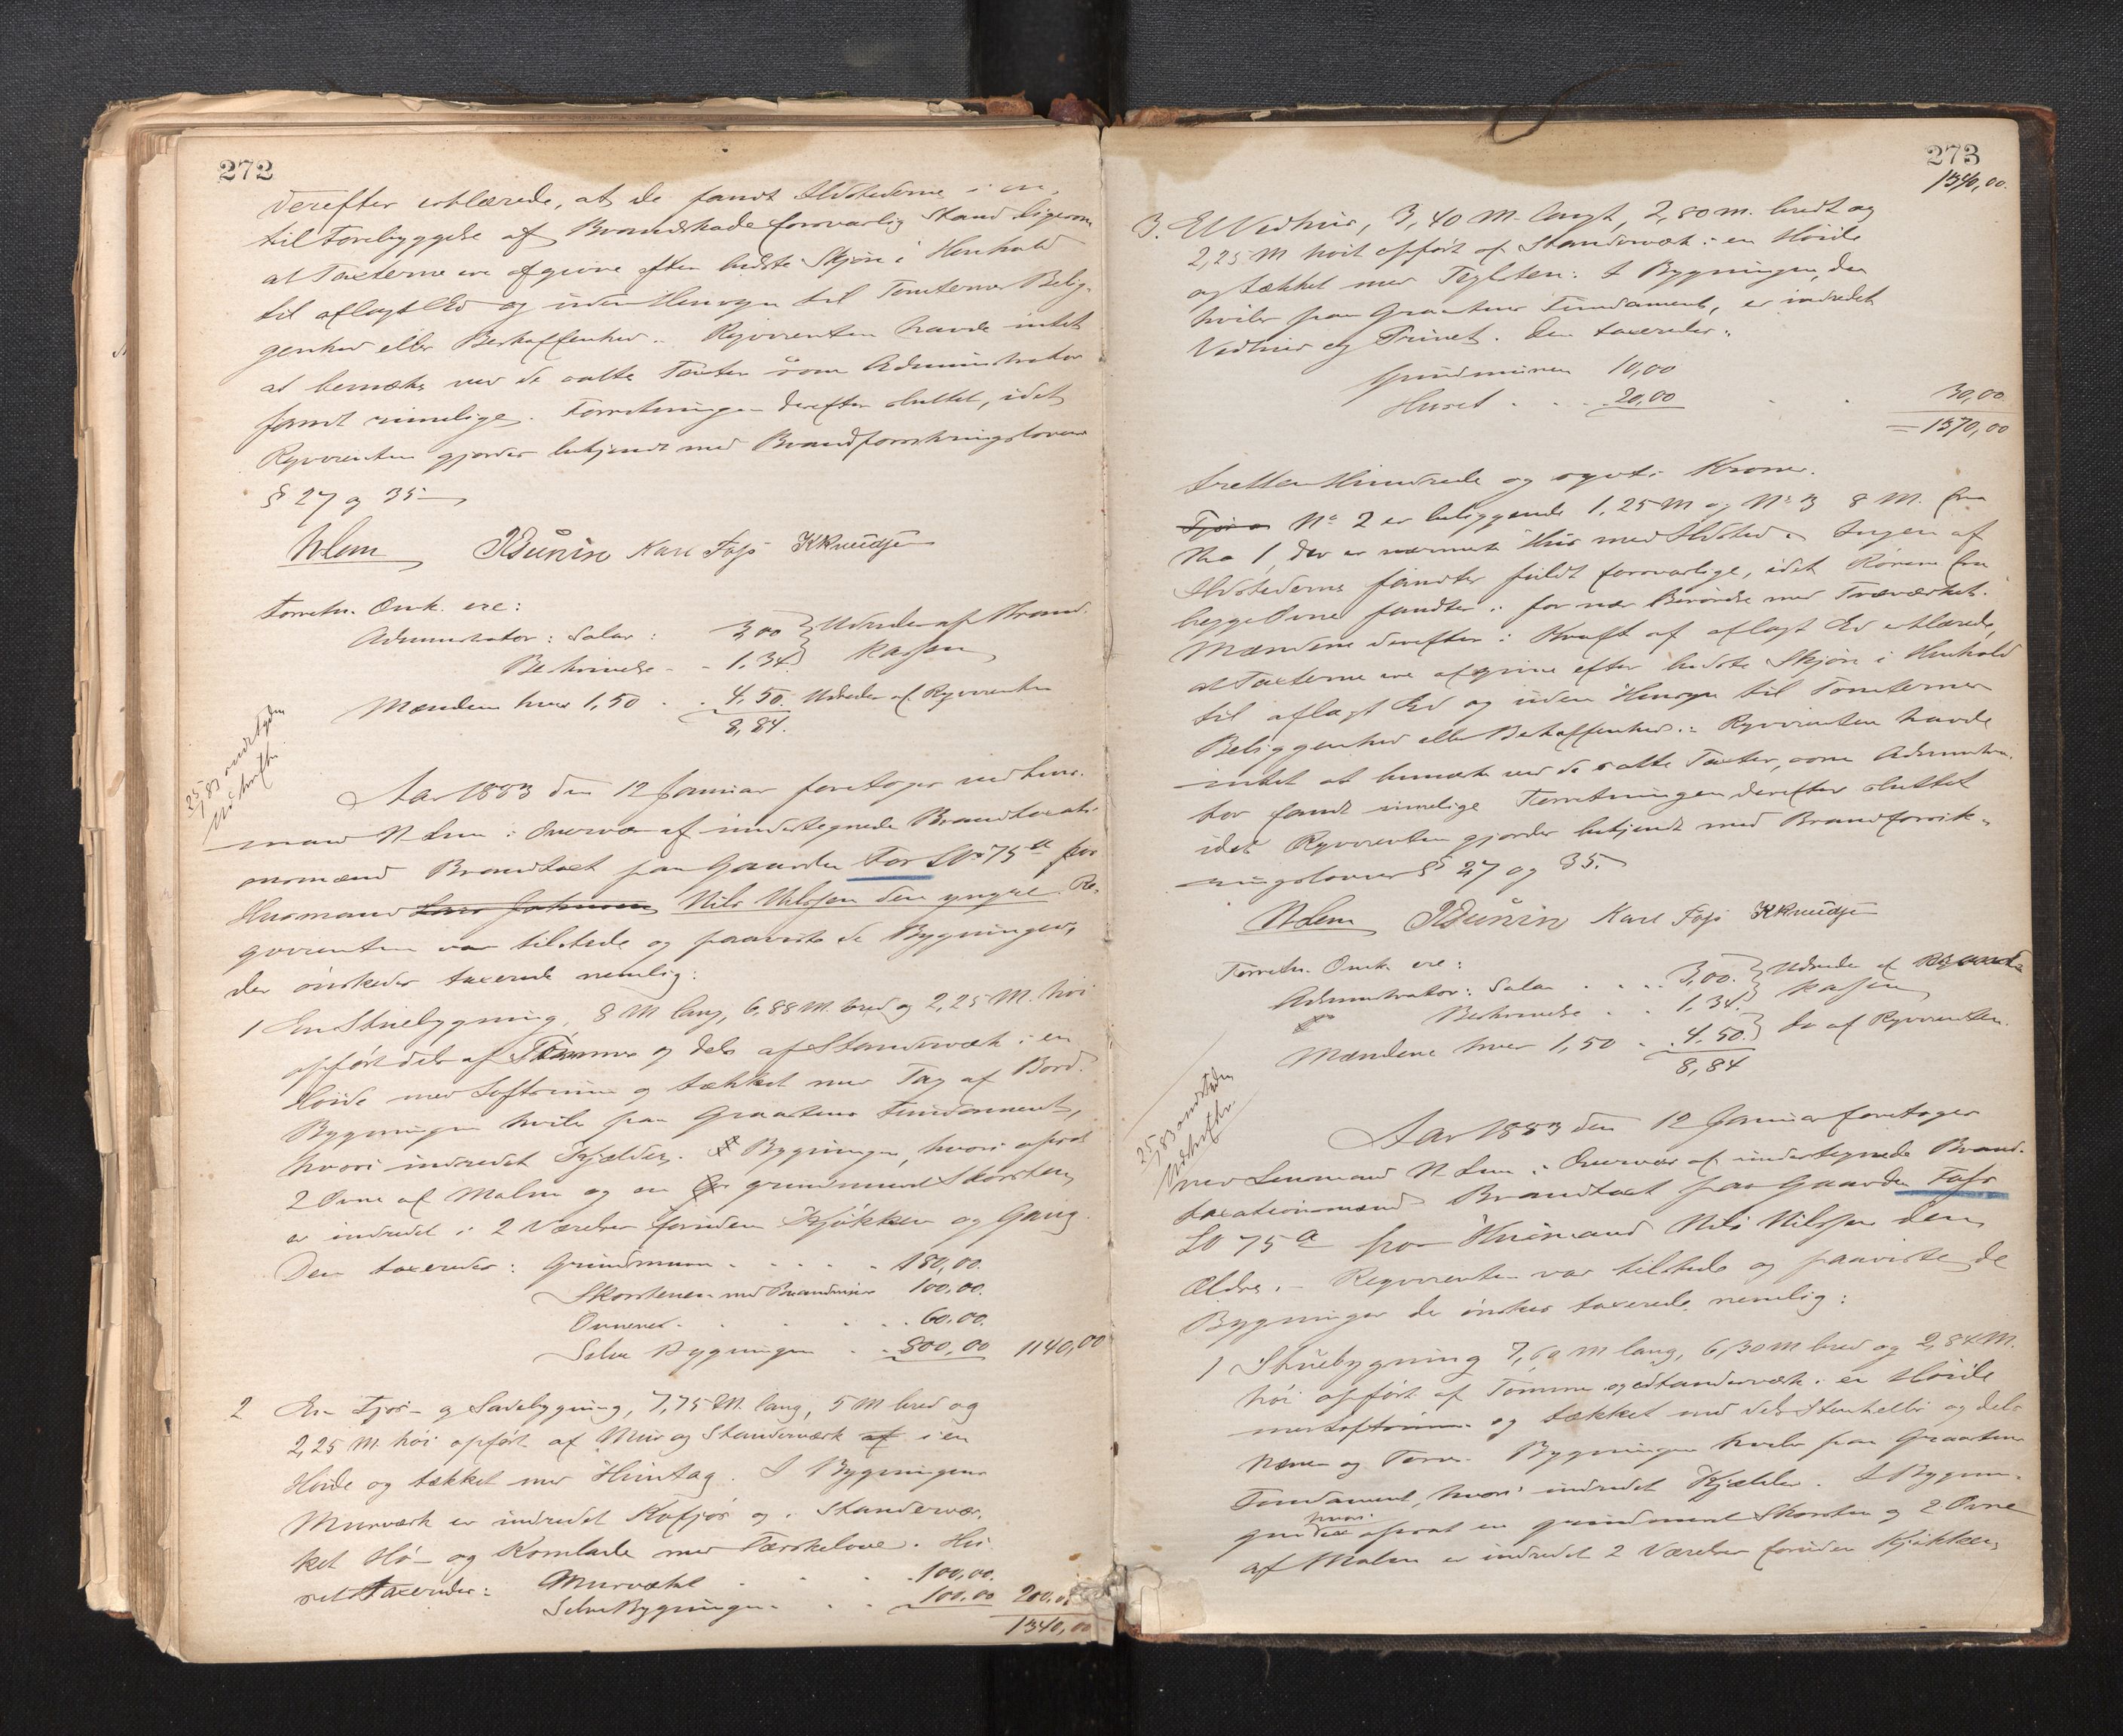 272
derefter erklærede, at de fandt Ildstederne i en
til Forebyggelse af Brandskade forsvarlig Stand ligesom
at Taxterne ere afgivne efter bedste Skjøn i Henhold
til aflagt Ed og uden Hensyn til Tomternes Belig-
genhed eller Beskaffenhed. Reqvirenten havde intet
at bemærke ved de satte Taxter som Administrator
fandt rimelige. Forretningen derefter sluttet, idet
Reqvirenten gjordes bekjendt med Brandforsikringslovens
§ 27 og 35
N Lem Karl Fass K Knudsen
Forretn. Omk. ere:
Administrator: Salar: 3,00 } Udredes af Brand-
Beskrivelse - - 1,34 } kassen
Mændene hver 1,50 . . 4,50. Udredes af Reqvirenten
8,84.
25/1 83 udstedt
Udskrift
Aar 1883 den 12 Januar foretoges ved Lens-
mand N Lem i Overvær af undertegnede Brandtaxati-
onsmænd Brandtaxt paa Gaarden Fas LNo 75 a for
Husmand Nils Nilssen den yngre. Re-
qvirenten var tilstede og paaviste de Bygninger,
der ønskedes taxerede nemlig:
1 En Stuebygning, 8 M lang, 6,88 M. bred og 2,25 M. høi
opført dels af Tømmer og dels af Standerværk i en
Høide med Loftsrum og tækket med Tag af Bord.
Bygningen hviler paa Graastens Fundament,
hvori indredet Kjælder. Bygningen, hvori opsat
2 Ovne af Malm og en grundmuret Skorsten,
er indredet i 2 Værelser foruden Kjøkken og Gang.
Den taxeredes: Grundmuren - - - - - 180,00.
Skorstenen med Brandmur 100,00.
Ovnene - . . . . . 60.00.
Selve Bygningen - - 800,00 1140,00
2 En Fjøs- og Ladebygning, 7,75 M. lang, 5 M bred og
2,25 M. høi opført af Mur og Standerværk af i en
Høide og tækket med Huntag. I Bygningens
Murværk er indredet Kofjøs og i Standervær-
ket Hø- og Kornlade med Tærskelove. Hu-
set taxeredes: Murværket . . . 100,00.
Selve Bygningen - . . 100.00 200.00
1340,00
273
1340,00.
3. Et Vedhus, 3,40 M. langt, 2,80 m. bredt og
2,25 M høit opført af Standerværk i en Høide
og tækket med Teglsten. I Bygningen, der
hviler paa Graastens Fundament, er indredet
Vedhus og Privet. Den taxeredes:
Grundmuren 10,00
Huset . . . 20,00 . . 30,00.
= 1370,00
tretten Hundrede og sytti Kroner.
Fjøs No 2 er beliggende 1,25 M og No 3 8 M. fra
No 1, der er nærmeste Hus med Ildsted. Ingen af
Ildstederne fandtes fuldt forsvarlige, idet Rørene fra
begge Ovne fandtes i for nær Berørelse med Træværket.
Mændene derefter i Kraft af aflagt Ed erklærede,
at Taxterne ere afgivne efter bedste Skjøn i Henhold
til aflagt Ed og uden Hensyn til Tomternes
Beliggenhed eller Beskaffenhed. Reqvirenten havde
intet at bemærke ved de satte Taxter, som Administra-
tor fandt rimelige Forretningen derefter sluttet
idet Reqvirenten gjordes bekjendt med Brandforsik-
ringslovens § 27 og 35.
N Lem Karl Fass K Knudsen
Forretn. Omk. ere:
Administrator: Salar . . . . 3,00. } Udredes af Brand
Beskrivelse . . 1,34. } kassen
Mændene hver 1,50 . . 4,50. } do af Reqvirenten.
8,84
25/1 83 udstedt
Udskrift
Aar 1883 den 12 Januar foretoges
ved Lensmand N. Lem i Overvær af undertegnede Brand-
taxationsmænd Brandtaxt paa Gaarden Fass
LN 75 a for Husmand Nils Nilssen den
Ældre. - Reqvirenten var tilstede og paaviste de
Bygninger de ønskes taxerede nemlig:
1 Stuebygning 7,60 M lang, 6,30 M bred og 2,84 M.
høi opført af Tømmer og Standerværk i en Høide
med Loftsrum og tækket med dels Stenheller og dels
Næver og Torv. Bygningen hviler paa Graastens
Fundament, hvori indredet Kjælder. I Bygnin-
gen hvori opsat en grundmuret Skorsten og 2 Ovne
af Malm er indredet 2 Værelser foruden Kjøkken,